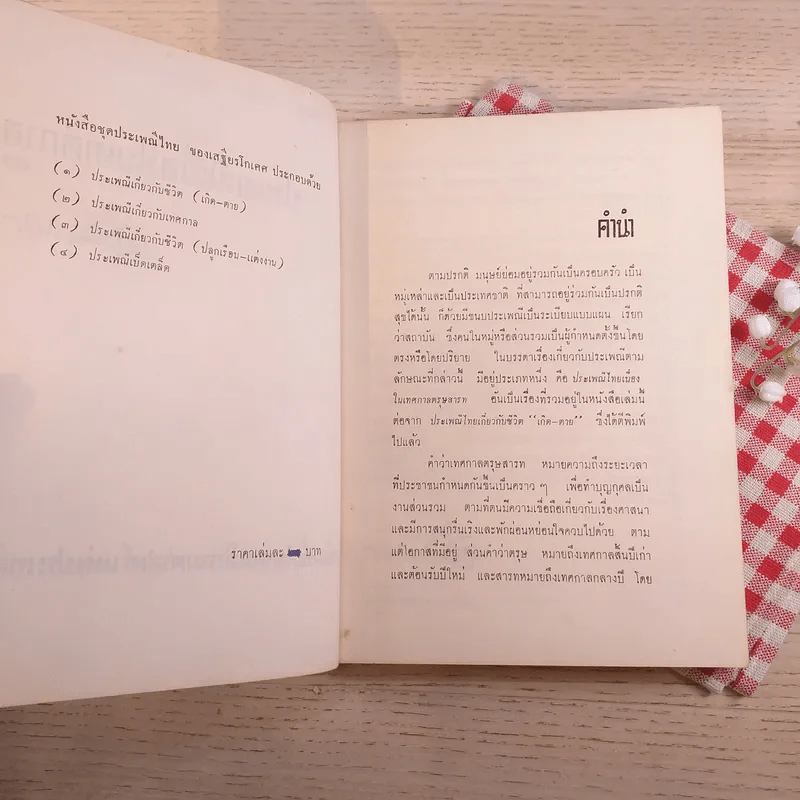 หนังสือชุดประเพณีไทย ของเสฐียรโกเศศ ประกอบด้วย
(๑) ประเพณีเกี่ยวกับชีวิต (เกิด-ตาย)
(๒) ประเพณีเกี่ยวกับเทศกาล
(๓) ประเพณีเกี่ยวกับชีวิต (ปลูกเรือน-แต่งงาน)
(๔) ประเพณีเบ็ดเตล็ด
ราคาเล่มละ บาท
คำนำ
ตามปรกติ มนุษย์ย่อมอยู่รวมกันเป็นครอบครัว เป็น
หมู่เหล่าและเป็นประเทศชาติ ที่สามารถอยู่ร่วมกันเป็นปรกติ
สุขได้นั้น ก็ด้วยมีขนบประเพณีเป็นระเบียบแบบแผน เรียก
ว่าสถาบัน ซึ่งคนในหมู่หรือส่วนรวมเป็นผู้กำหนดตั้งขึ้นโดย
ตรงหรือโดยปริยาย ในบรรดาเรื่องเกี่ยวกับประเพณีตาม
ลักษณะที่กล่าวนี้ มีอยู่ประเภทหนึ่ง คือ ประเพณีไทยเนื่อง
ในเทศกาลตรุษสารท อันเป็นเรื่องที่รวมอยู่ในหนังสือเล่มนี้
ต่อจาก ประเพณีไทยเกี่ยวกับชีวิต "เกิด-ตาย" ซึ่งได้ตีพิมพ์
ไปแล้ว
คำว่าเทศกาลตรุษสารท หมายความถึงระยะเวลา
ที่ประชาชนกำหนดกันขึ้นเป็นคราว ๆ เพื่อทำบุญกุศลเป็น
งานส่วนรวม ตามที่ตนมีความเชื่อถือเกี่ยวกับเรื่องศาสนา
และมีการสนุกรื่นเริงและพักผ่อนหย่อนใจควบไปด้วย ตาม
แต่โอกาสที่มีอยู่ ส่วนคำว่าตรุษ หมายถึงเทศกาลสิ้นปีเก่า
และต้อนรับปีใหม่ และสารทหมายถึงเทศกาลกลางปี โดย